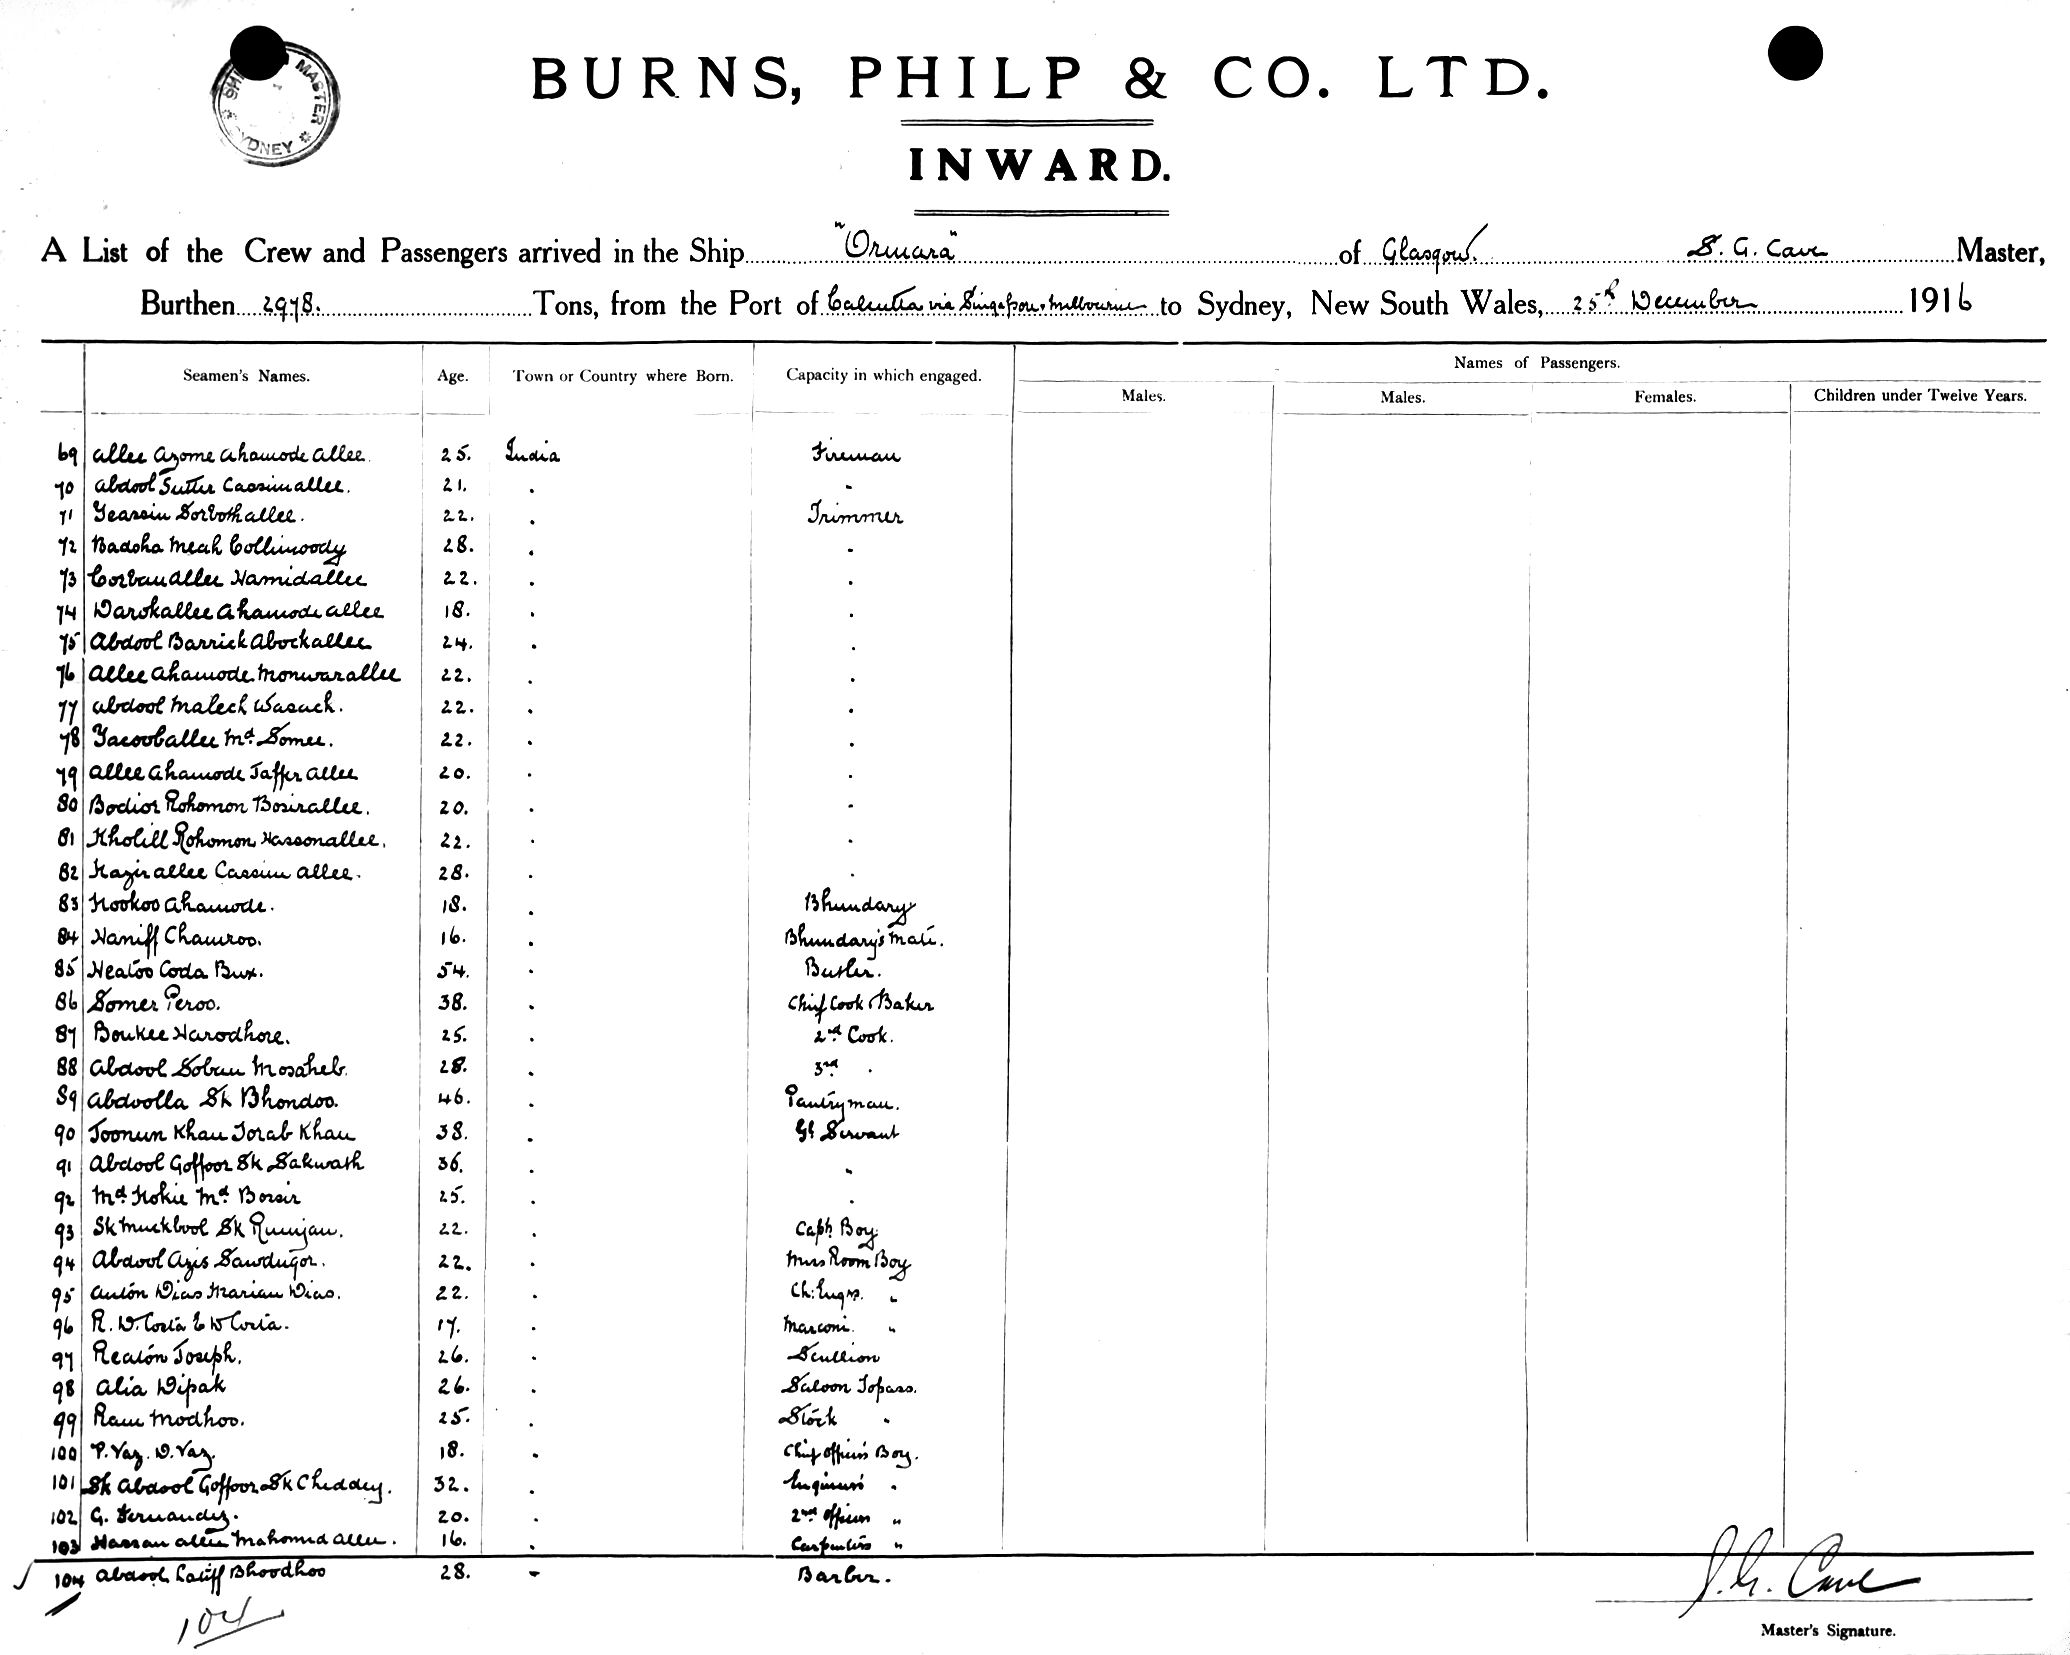 SHIPPING MASTER
SYDNEY
BURNS, PHILP & CO. LTD.
INWARD.
A List of the Crew and Passengers arrived in the Ship "Ormara" of Glasgow. S. G. Cave Master,
Burthen 2978. Tons, from the Port of Calcutta via Singapore & Melbourne to Sydney, New South Wales, 25th December 1916
Seamen's Names. Age. Town or Country where Born. Capacity in which engaged. Names of Passengers.
Males. Males. Females. Children under Twelve Years.
69 Allee Azome Ahamode Allee. 25. India Fireman
70 Abdool Sutter Cassimallee. 21. " "
71 Yeassin Sorbothallee. 22. " Trimmer
72 Badsha Meah Collimoody 28. " "
73 Corban Allee Hamidallee 22. " "
74 Darokallee Ahamode Allee 18. " "
75 Abdool Barrick Abockallee 24. " "
76 Allee Ahamode Monwarallee 22. " "
77 Abdool Malech Wasack. 22. " "
78 Yacooballee Md. Somee. 22. " "
79 Allee Ahamode Jaffer Allee 20. " "
80 Bodior Rohomon Bosirallee. 20. " "
81 Kholill Rohomon Hassonallee. 22. " "
82 Nazirallee Cassim Allee. 28. " "
83 Nookoo Ahamode. 18. " Bhundary
84 Haniff Chamroo. 16. " Bhundary's Mate.
85 Heatoo Coda Bux. 54. " Butler.
86 Somer Peroo. 38. " Chief Cook & Baker
87 Boukee Harodhone. 25. " 2nd Cook.
88 Abdool Soban Mosaheb. 28. " 3rd "
89 Abdoolla Sk Bhondoo. 46. " Pantryman.
90 Joonun Khan Torab Khan 38. " Gl Servant
91 Abdool Goffoor Sk Sakwath 36. " "
92 Md. Nokie Md. Borsir 25. " "
93 Sk Muckbool Sk Rumjan. 22. " Capt. Boy
94 Abdool Azis Sawdugor. 22. " Mess Room Boy
95 Anton Dias Marian Dias. 22. " Ch: Engrs. "
96 R. D. Costa E D Costa. 17. " Marconi. "
97 Reaton Joseph. 26. " Scullion
98 Alia Dipak 26. " Saloon Topass.
99 Ram Modhoo. 25. " Stock "
100 P. Vaz. D. Vaz. 18. " Chief Officers Boy.
101 Sk Abdool Goffoor Sk Cheddey. 32. " Engineers "
102 G. Fernandez. 20. " 2nd Officers "
103 Hassan Allee Mahomed Allee. 16. " Carpenters "
104 Abdool Latiff Bhoodhoo 28. " Barber.
104
S. G. Cave
Master's Signature.